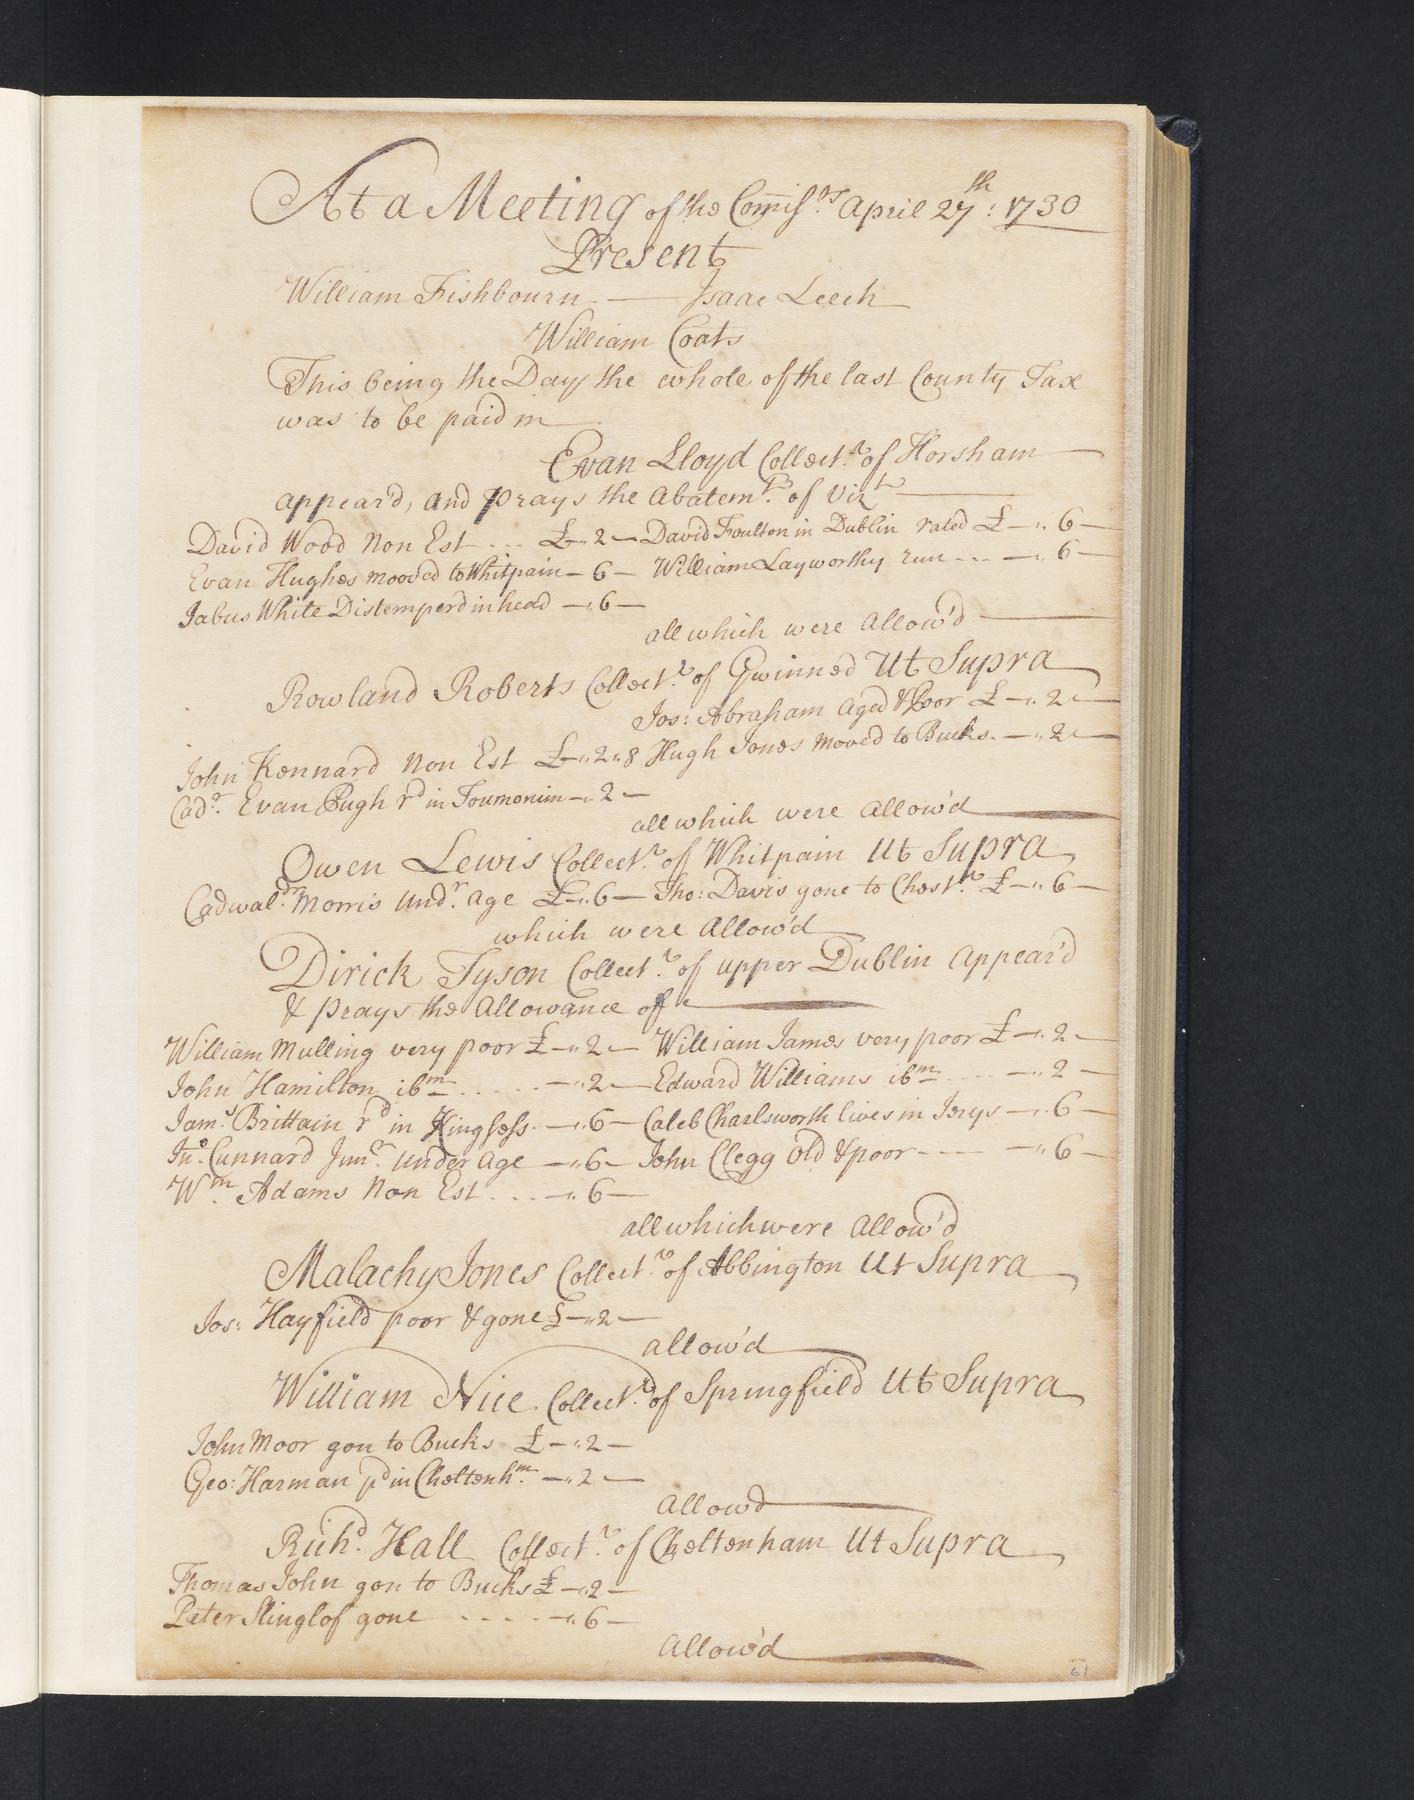 At a Meeting of the Com̄iss.rs April 27th: 1730
Present
William Fishbourn — Isaac Leech
William Coats
This being the Day the whole of the last County Tax
was to be paid in
Evan Lloyd Collect.r of Horsham
appear'd, and prays the Abatem.ts of Vizt
David Wood Non Est ... £-"2- David Foulton in Dublin rated £-"6-
Evan Hughes mooved to Whitpain-6- William Layworthy run ... -"6-
Jabus White Distemper'd in head -"6-
all which were Allow'd
Rowland Roberts Collect.r of Gwinned Ut Supra
Jos: Abraham Aged & Poor £-"2-
John Kennard Non Est £-"2"8 Hugh Jones Moved to Bucks. -"2-
Cad.r Evan Pugh rd in Toumonim-"2-
all which were Allow'd
Owen Lewis Collect.r of Whitpain Ut Supra
Cadwal.dr Morris Und.r Age £-"6- Tho: Davis gone to Chest.r £-"6-
which were Allow'd
Dirick Tyson Collect.r of upper Dublin Appear'd
& prays the Allowance of
William Mulling very poor £-"2- William James very poor £-"2-
John Hamilton ibm .... -"2- Edward Williams ibm .... -"2-
Jam.s Brittain rd in Kingsess. -"6- Caleb Charlsworth lives in Jerys -"6-
Jno. Cunnard Jun.r under Age -"6- John Clegg old & poor ---- -"6-
Wm. Adams Non Est ... -"6-
all which were Allow'd
Malachy Jones Collect.r of Abbington Ut Supra
Jos: Hayfield poor & gone £-"2-
allow'd
William Nice Collect.r of Springfield Ut Supra
John Moor gon to Bucks £-"2-
Geo: Harman pd in Cheltenh.m -"2-
Allowd
Richd. Hall Collect.r of Cheltenham Ut Supra
Thomas John gon to Bucks £-"2-
Peter Slinglof gone .... -"6-
Allow'd
61